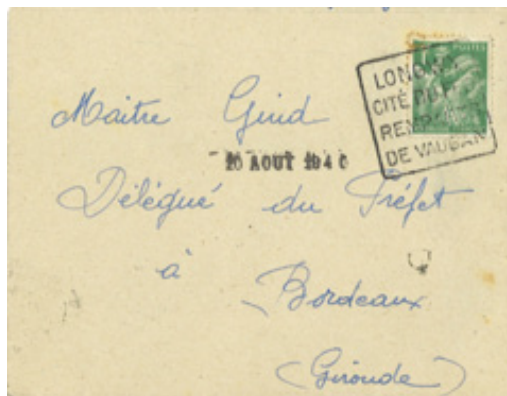 POSTES
LONGWY
CITÉ
REMPARTS
DE VAUBAN
Maitre
10 AOUT 1940
Délégué du Préfet
à
Bordeaux
(Gironde)